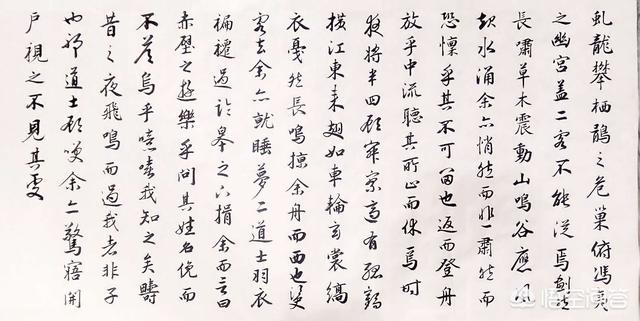 虬龍攀栖鶻之危巢俯馮夷
之幽宮蓋二客不能從焉劃然
長嘯草木震動山鳴谷應風
起水涌余亦悄然而悲肅然而
恐懔乎其不可留也返而登舟
放乎中流聽其所止而休焉時
夜將半四顧寂寥適有孤鶴
橫江東來翅如車輪玄裳縞
衣戛然長鳴掠余舟而西也臾
客去余亦就睡夢二道士羽衣
蹁躚過臨皋之下揖余而言曰
赤壁之遊樂乎問其姓名俛而
不答嗚乎噫嘻我知之矣疇
昔之夜飛鳴而過我者非子
也邪道士顧笑余亦驚寤開
戶視之不見其處
悟空问答